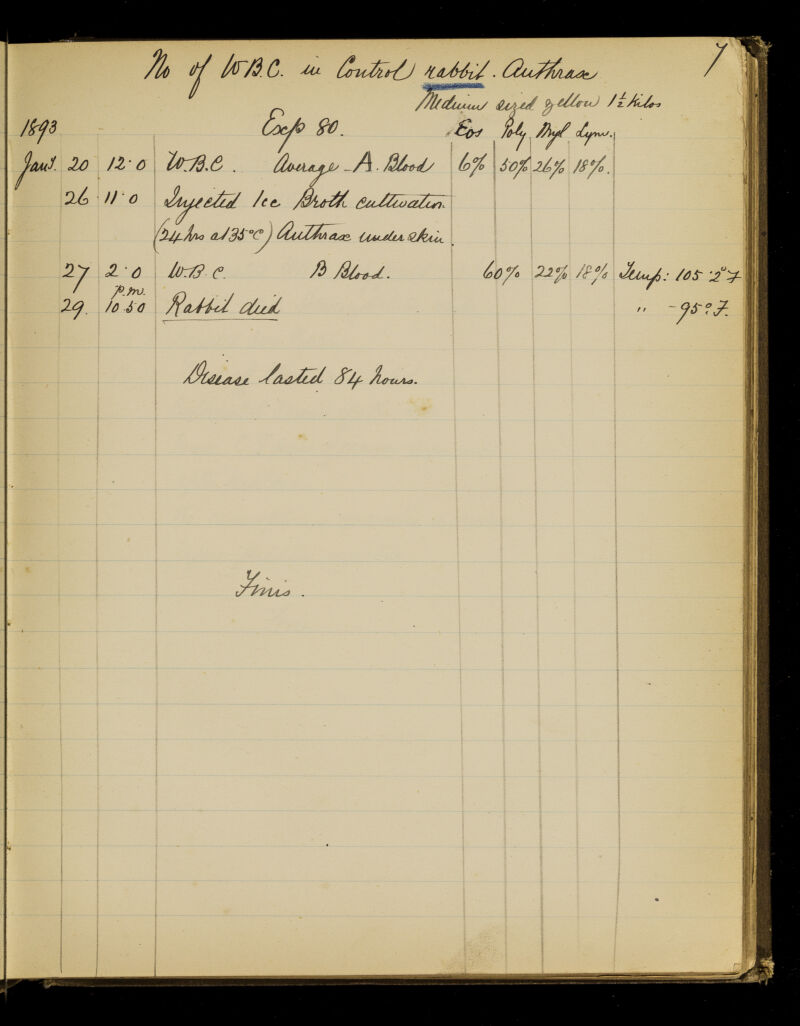 7
No of W.B.C. in Control rabbit. Anthrax
Medium sized yellow 1½ Kilos
1893 Exp 80. Eos Poly Myl Lym.
Jany. 20 12.0 W.B.C. Average - A. Blood 6% 50% 26% 18%.
26 11.0 Injected 1cc Broth cultivation
(24 hrs at 35°C) Anthrax under skin.
27 2.0 W.B.C. B Blood. 60% 22% 18% Temp: 105.2° F
p.m.
29. 10.50 Rabbit died " - 95°. F.
Disease lasted 84 hours.
Finis.